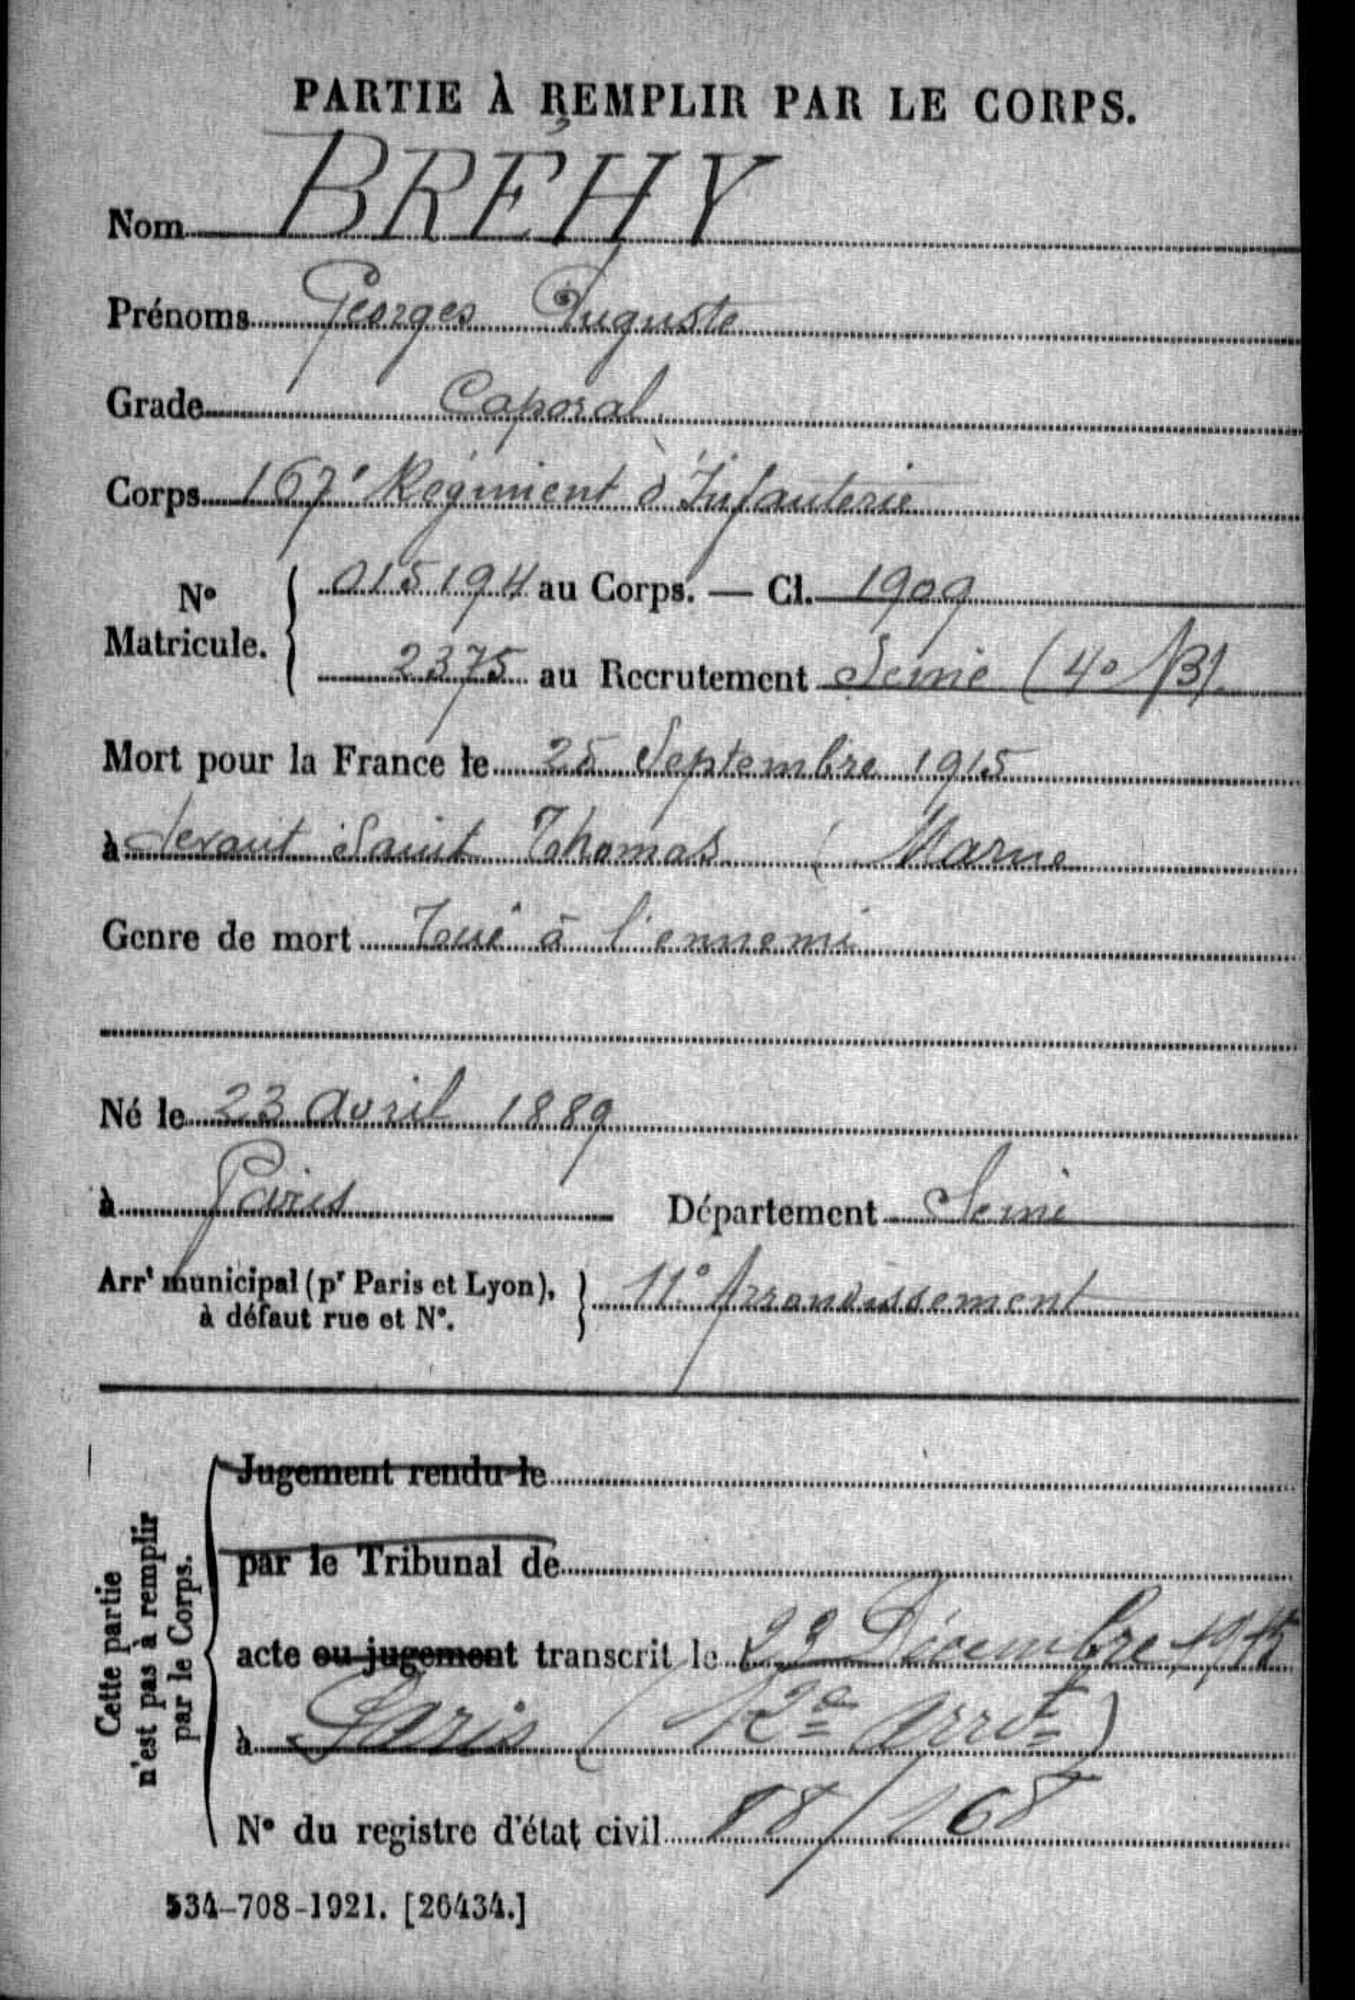 PARTIE À REMPLIR PAR LE CORPS.
Nom BRÉHY
Prénoms Georges Auguste
Grade Caporal.
Corps 167e Régiment d'Infanterie
N° Matricule. { 015194 au Corps. — Cl. 1909
2375 au Recrutement Seine (4° B).
Mort pour la France le 25 Septembre 1915
à devant Saint Thomas (Marne
Genre de mort Tué à l'ennemi
Né le 23 Avril 1889
à Paris Département Seine
Arrt municipal (pr Paris et Lyon), } 11° Arrondissement
à défaut rue et N°.
Cette partie
n'est pas à remplir
par le Corps.
Jugement rendu le
par le Tribunal de
acte ou jugement transcrit le Décembre 1915
à Paris (12e arrt)
N° du registre d'état civil 88/168
534-708-1921. [26434.]